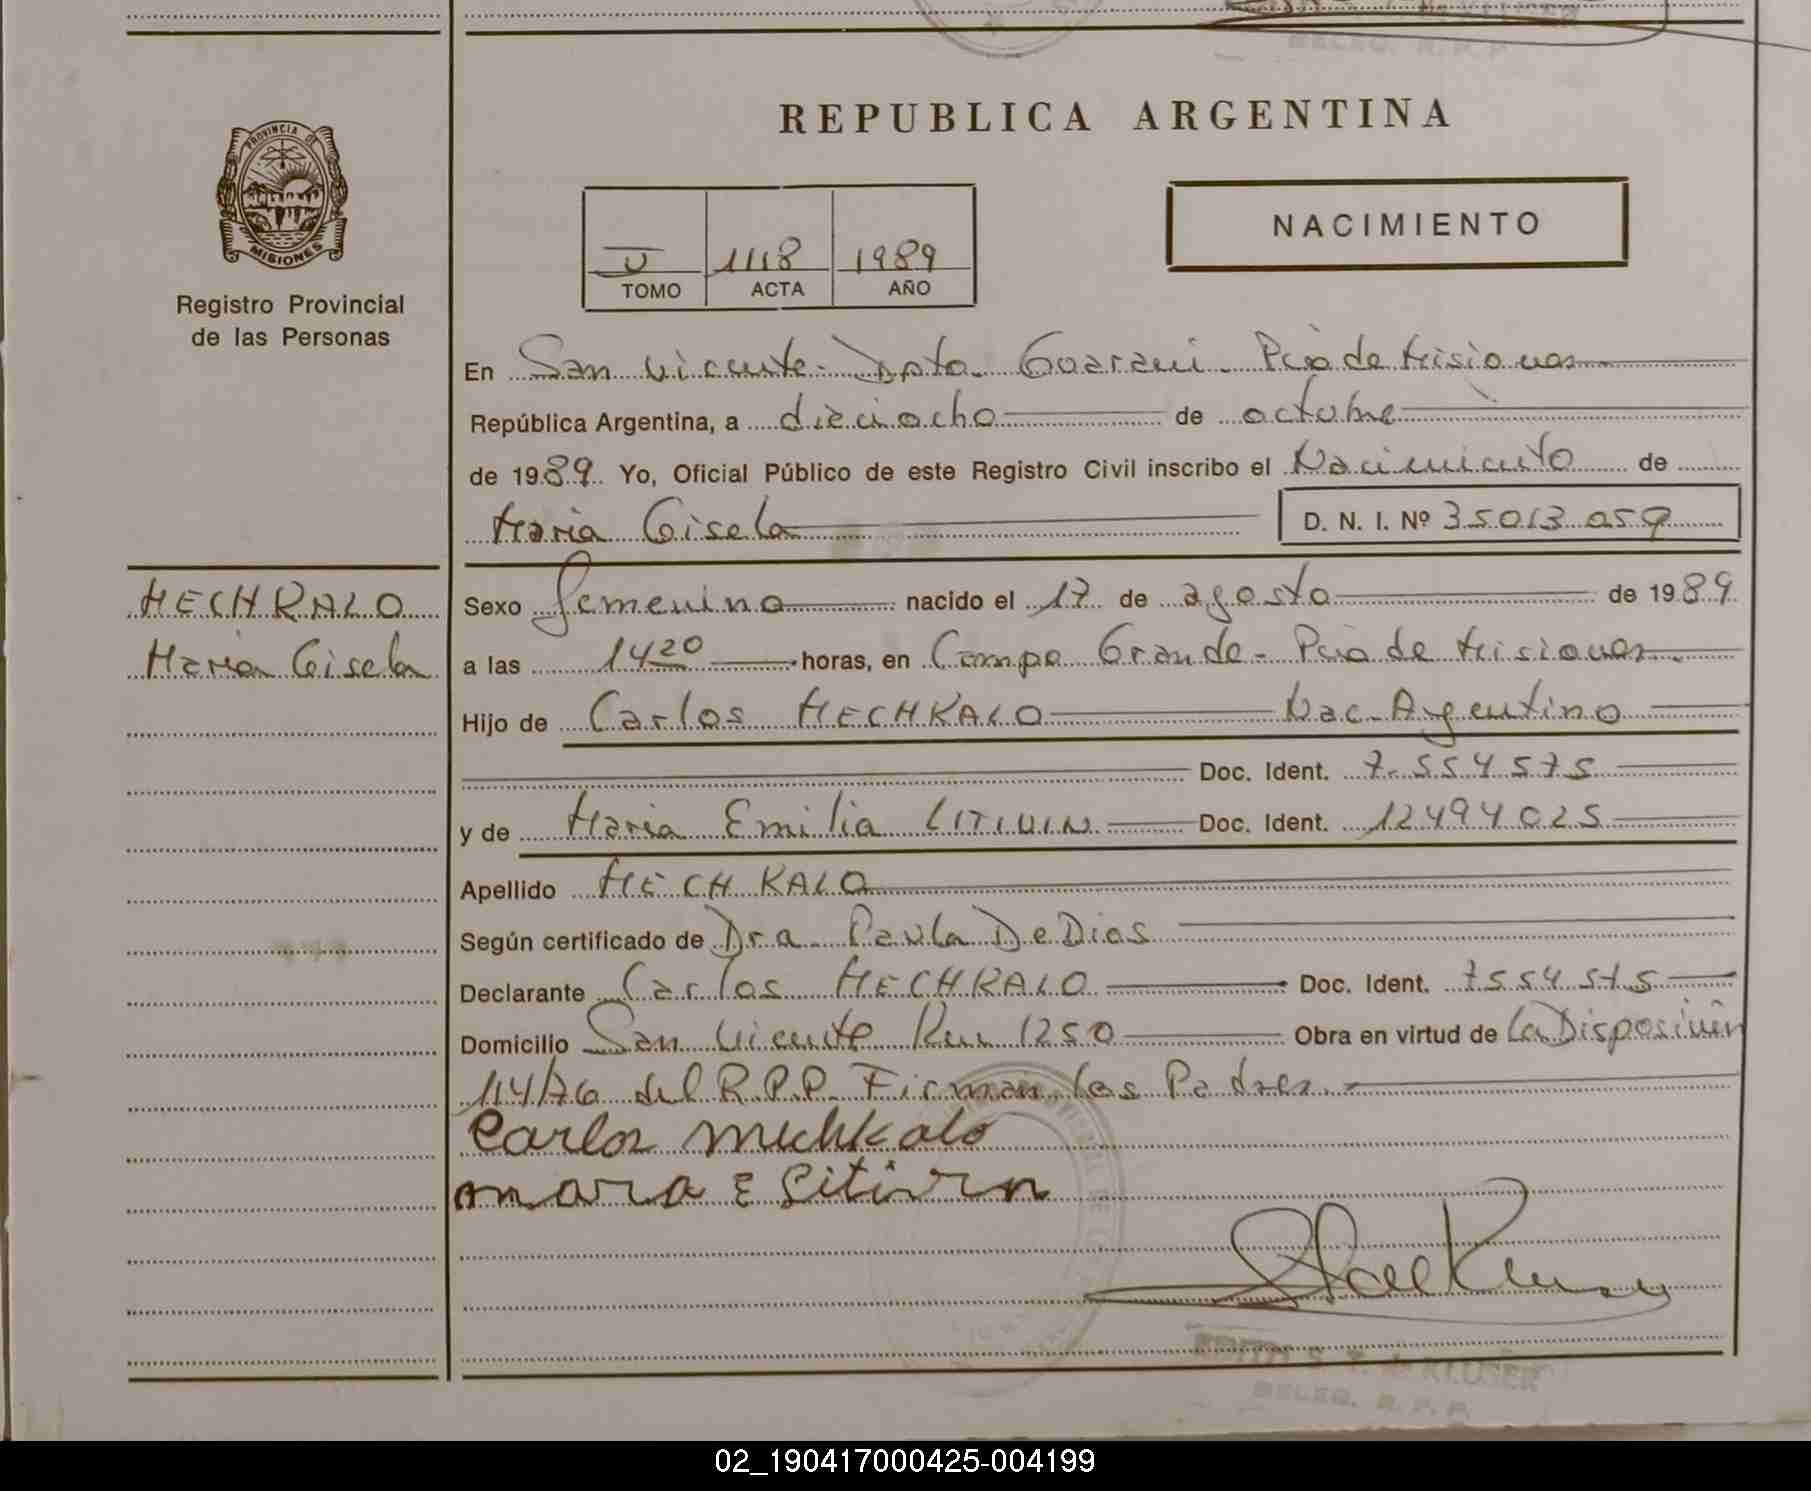 REPUBLICA ARGENTINA
PROVINCIA DE
MISIONES
Registro Provincial
de las Personas
NACIMIENTO
V 1118 1989
TOMO ACTA AÑO
En San Vicente - Dpto. Guarani - Pcia de Misiones
República Argentina, a dieciocho de octubre
de 1989 Yo, Oficial Público de este Registro Civil inscribo el Nacimiento de
Maria Gisela D. N. I. Nº 35013059
MECHKALO
Maria Gisela
Sexo femenino nacido el 17 de agosto de 1989
a las 14 20 horas, en Campo Grande - Pcia de Misiones
Hijo de Carlos MECHKALO Nac. Argentino
Doc. Ident. 7.554575
y de Maria Emilia LITIVIN Doc. Ident. 12494025
Apellido MECHKALO
Según certificado de Dra. Paula De Dios
Declarante Carlos MECHKALO Doc. Ident. 7554575
Domicilio San Vicente Km 1250 Obra en virtud de La Disposición
114/76 del R.P.P. Firman los Padres
Carlos Mechkalo
mara E Litivin
KLUSER
DELEG. R. P. P.
02_190417000425-004199